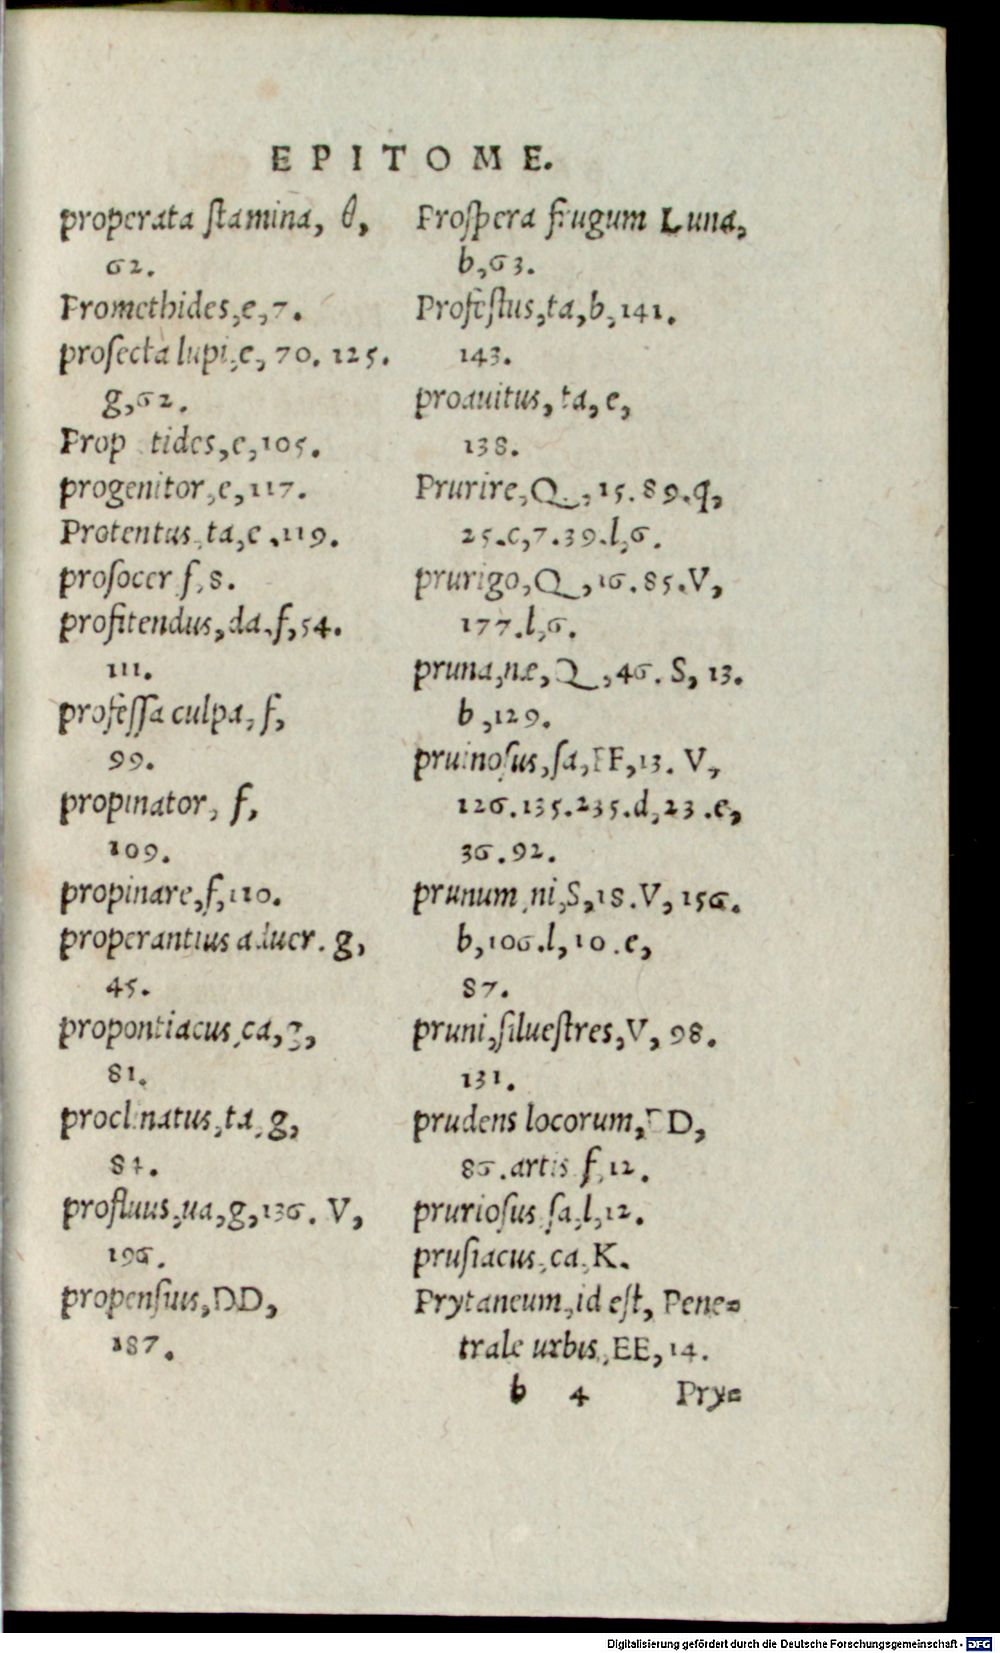 EPITOME.
properata ſtamina, θ,
62.
Promethides,e,7.
proſecta lupi,e, 70. 125.
g,62.
Prop tides,e,105.
progenitor,e,117.
Protentus,ta,e,119.
proſocer f,8.
profitendus,da,f,54.
111.
profeſſa culpa, f,
99.
propinator, f,
109.
propinare,f,110.
properantius aduer. g,
45.
propontiacus,ca,g,
81.
proclinatus,ta,g,
84.
profluus,ua,g,136. V,
196.
propenſius,DD,
187.
Proſpera frugum Luna,
b,63.
Profeſtus,ta,b,141.
143.
proauitus, ta, e,
138.
Prurire,Q,15.89.q,
25.c,7.39.l,6.
prurigo,Q,16.85.V,
177.l,6.
pruna,næ,Q,46. S, 13.
b,129.
pruinoſus,ſa,FF,13. V,
126.135.235.d,23.e,
36.92.
prunum,ni,S,18.V,156.
b,106.l,10.e,
87.
pruni,ſilueſtres,V, 98.
131.
prudens locorum,DD,
86.artis f,12.
prurioſus ſa,l,12.
pruſiacus,ca,K.
Prytaneum,id eſt, Pene=
trale urbis,EE,14.
b 4 Pry=
Digitalisierung gefördert durch die Deutsche Forschungsgemeinschaft - DFG